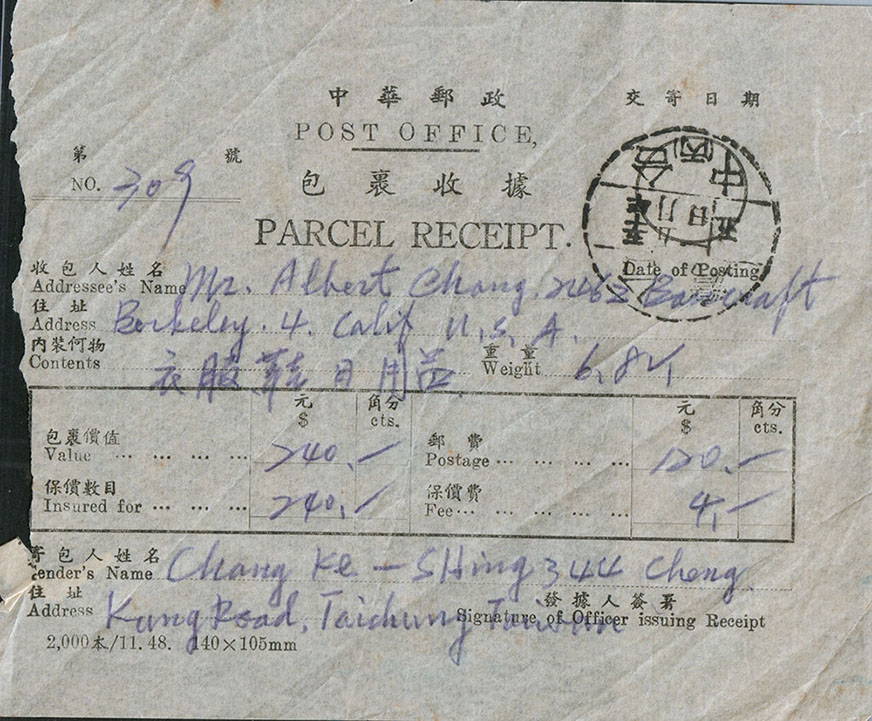 中華郵政
交寄日期
POST OFFICE,
第 號
NO. 309
包裹收據
PARCEL RECEIPT.
Date of Posting
收包人姓名
Addressee's Name Mr. Albert Chang. 2462 Bancraft
住址
Address Berkeley. 4. Calif U.S.A.
內裝何物 重量
Contents 衣服鞋日用品 Weight 6.8
元 角分 元 角分
$ cts. $ cts.
包裹價值 郵費
Value ... ... ... 240.— Postage ... ... ... ... 120.—
保價數目 保價費
Insured for ... ... ... 240.— Fee... ... ... ... ... 4.—
寄包人姓名
Sender's Name Chang Ke-SHing 344 Cheng
住址 發據人簽署
Address Kung Road, Taichung Taiwan Signature of Officer issuing Receipt
2,000本/11.48. 140×105mm